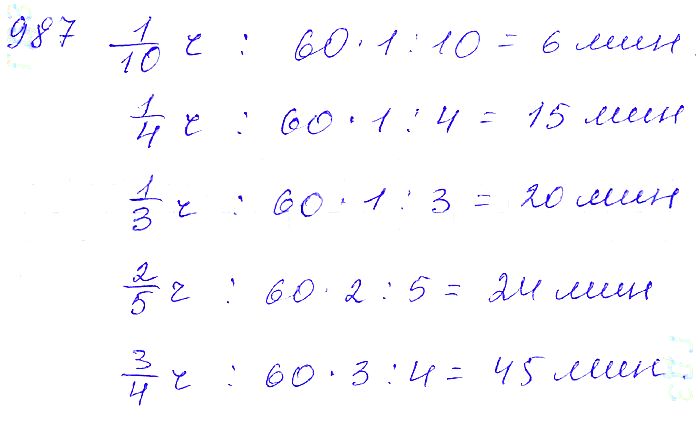 987 1/10 ч : 60 · 1 : 10 = 6 мин.
1/4 ч : 60 · 1 : 4 = 15 мин
1/3 ч : 60 · 1 : 3 = 20 мин
2/5 ч : 60 · 2 : 5 = 24 мин
3/4 ч : 60 · 3 : 4 = 45 мин.